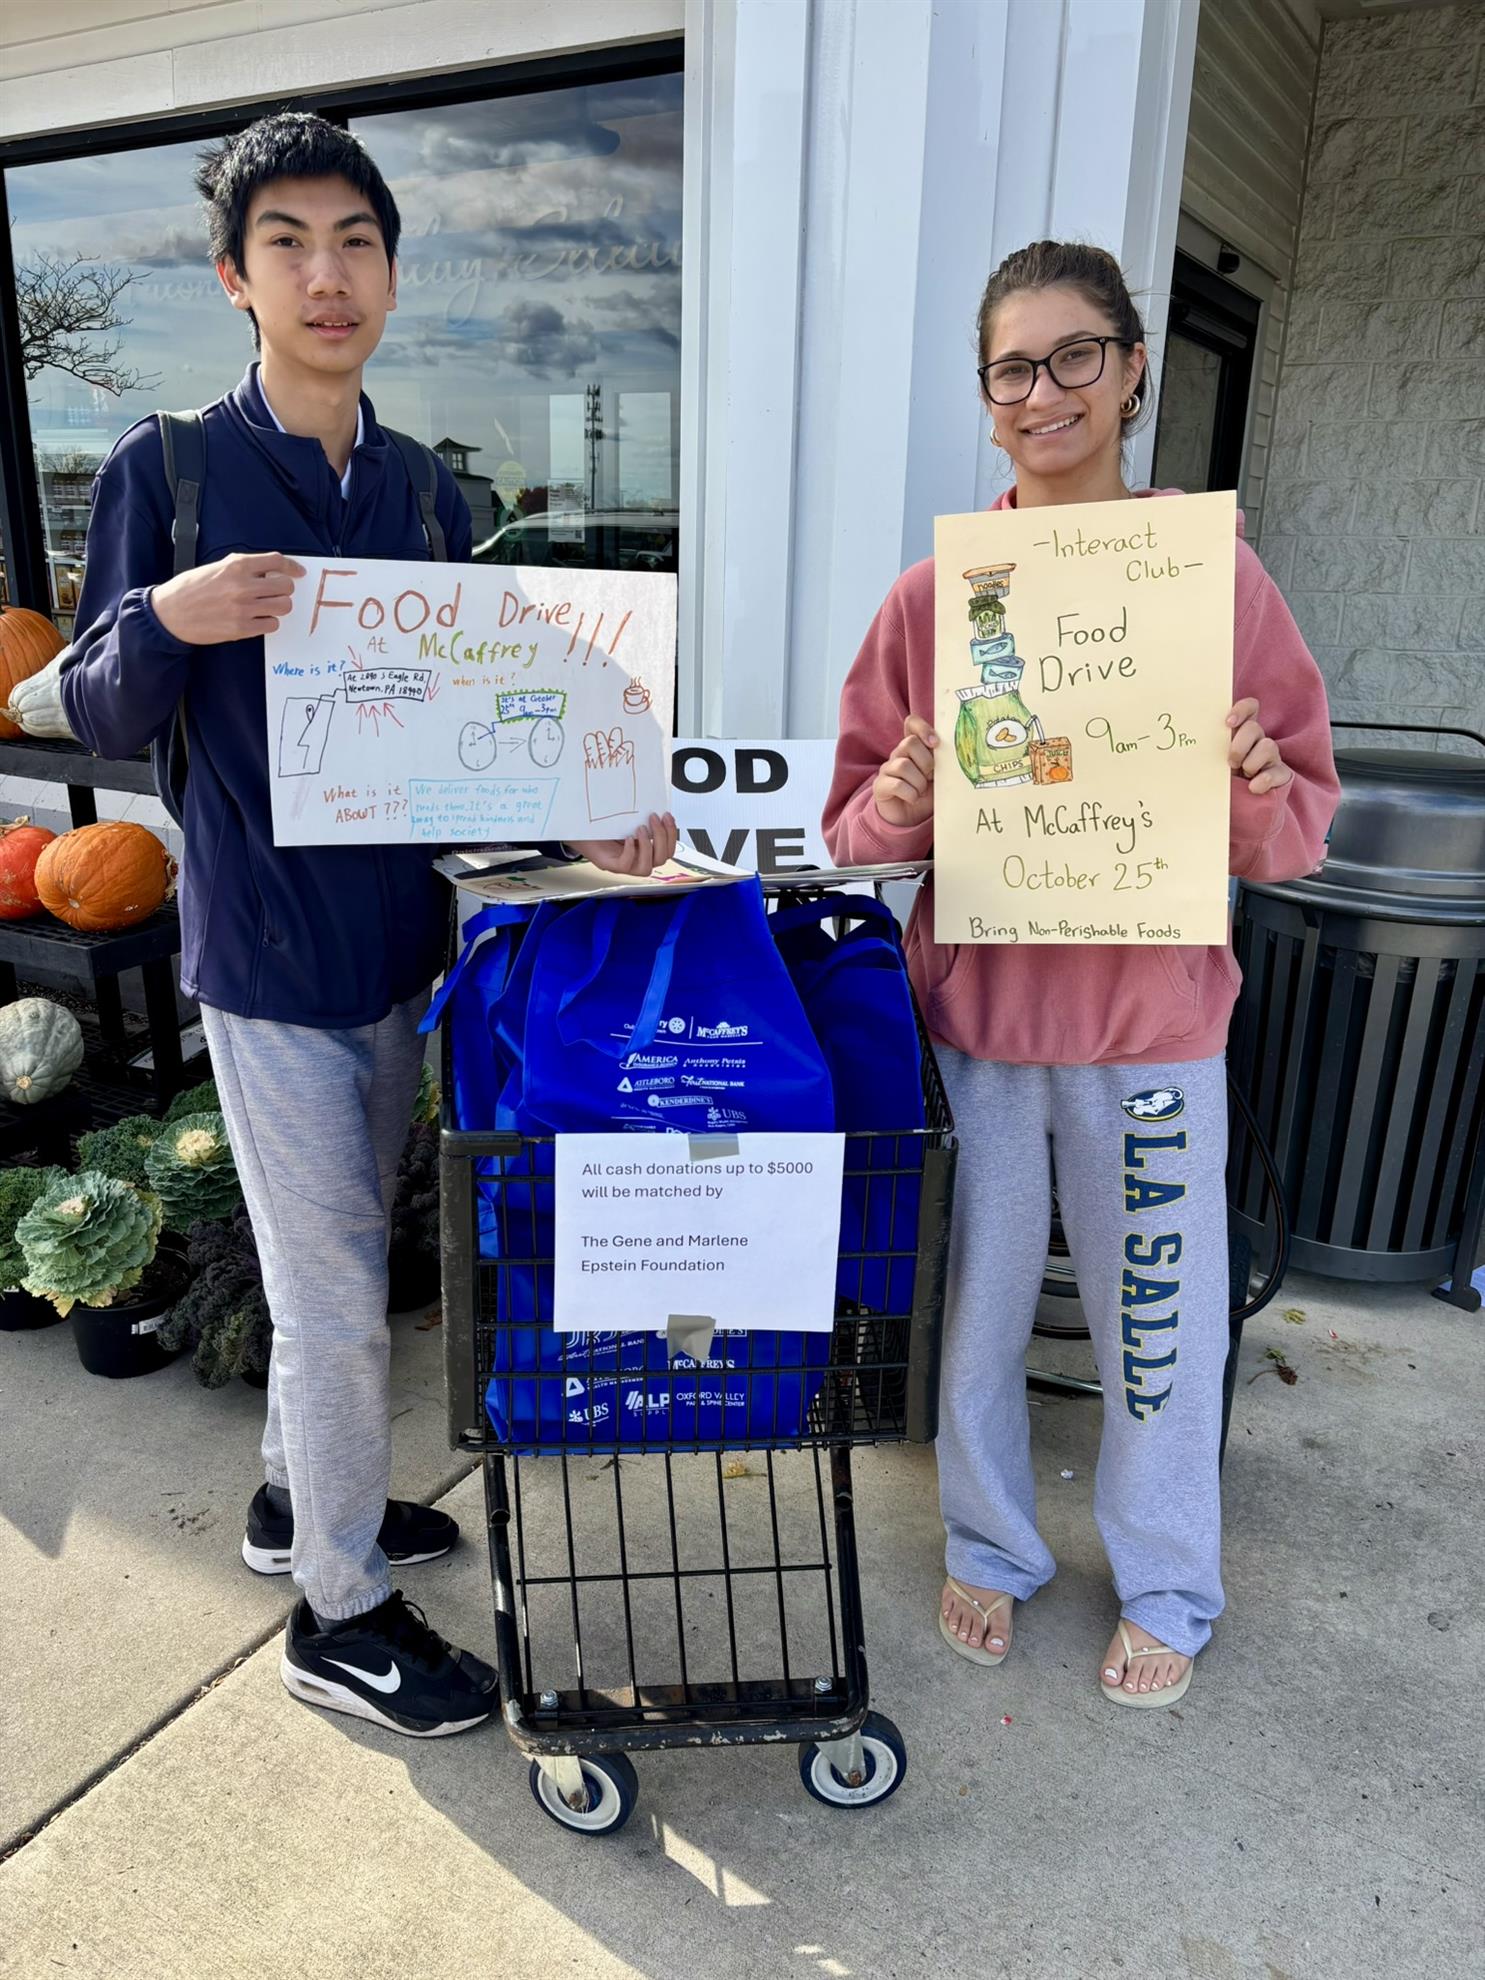 FOOD Drive!!!
At McCaffrey
Where is it?
At 2890 S Eagle Rd,
Newtown, PA 18940
when is it?
It's at October
25th 9am-3pm
What is it
ABOUT ???
We deliver foods for who
needs them. It's a great
way to spread kindness and
help society
-Interact
Club-
Food
Drive
9am-3pm
At McCaffrey's
October 25th
Bring Non-Perishable Foods
noodles
CHIPS
JUICE
OD
VE
McCAFFREY'S
AMERICA
Anthony Petsis
ATTLEBORO
First NATIONAL BANK
KENDERDINE'S
UBS
All cash donations up to $5000
will be matched by
The Gene and Marlene
Epstein Foundation
McCAFFREY'S
UBS
ALP
SUPPLY
OXFORD VALLEY
PAIN & SPINE CENTER
LA SALLE